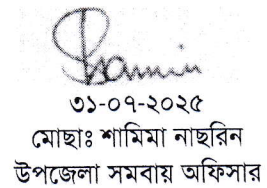 ৩১-০৭-২০২৫
মোছাঃ শামিমা নাছরিন
উপজেলা সমবায় অফিসার